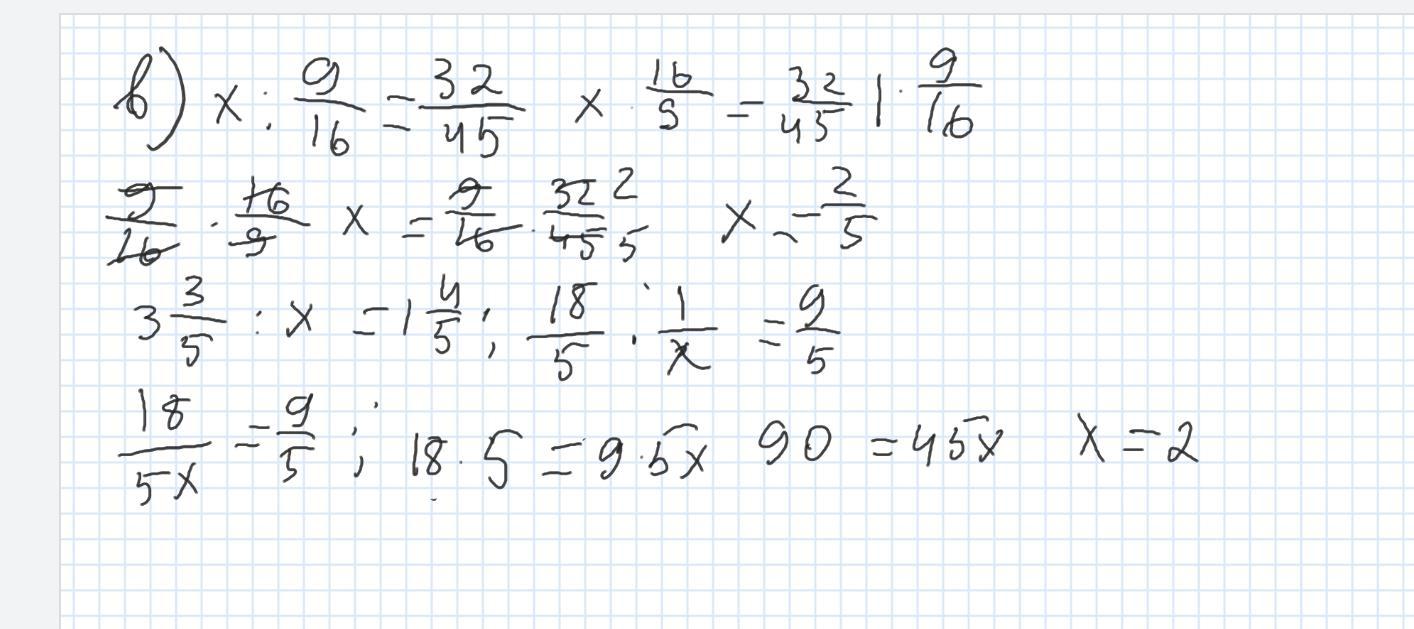 в) x : 9/16 = 32/45 x · 16/9 = 32/45 | · 9/16
9/16 · 16/9 x = 9/16 · 32/45 2/5 x = 2/5
3 3/5 : x = 1 4/5 ; 18/5 · 1/x = 9/5
18/5x = 9/5 ; 18 · 5 = 9 · 5x 90 = 45x x = 2